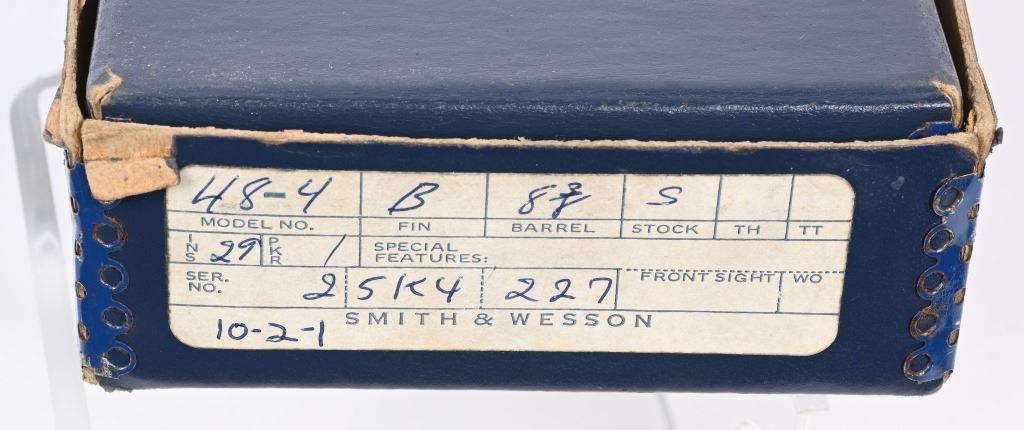 48-4 B 8 3/8 S
MODEL NO. FIN BARREL STOCK TH TT
INS 29 PKR 1 SPECIAL FEATURES:
SER. NO. 2 5K4 227 FRONT SIGHT WO
SMITH & WESSON
10-2-1